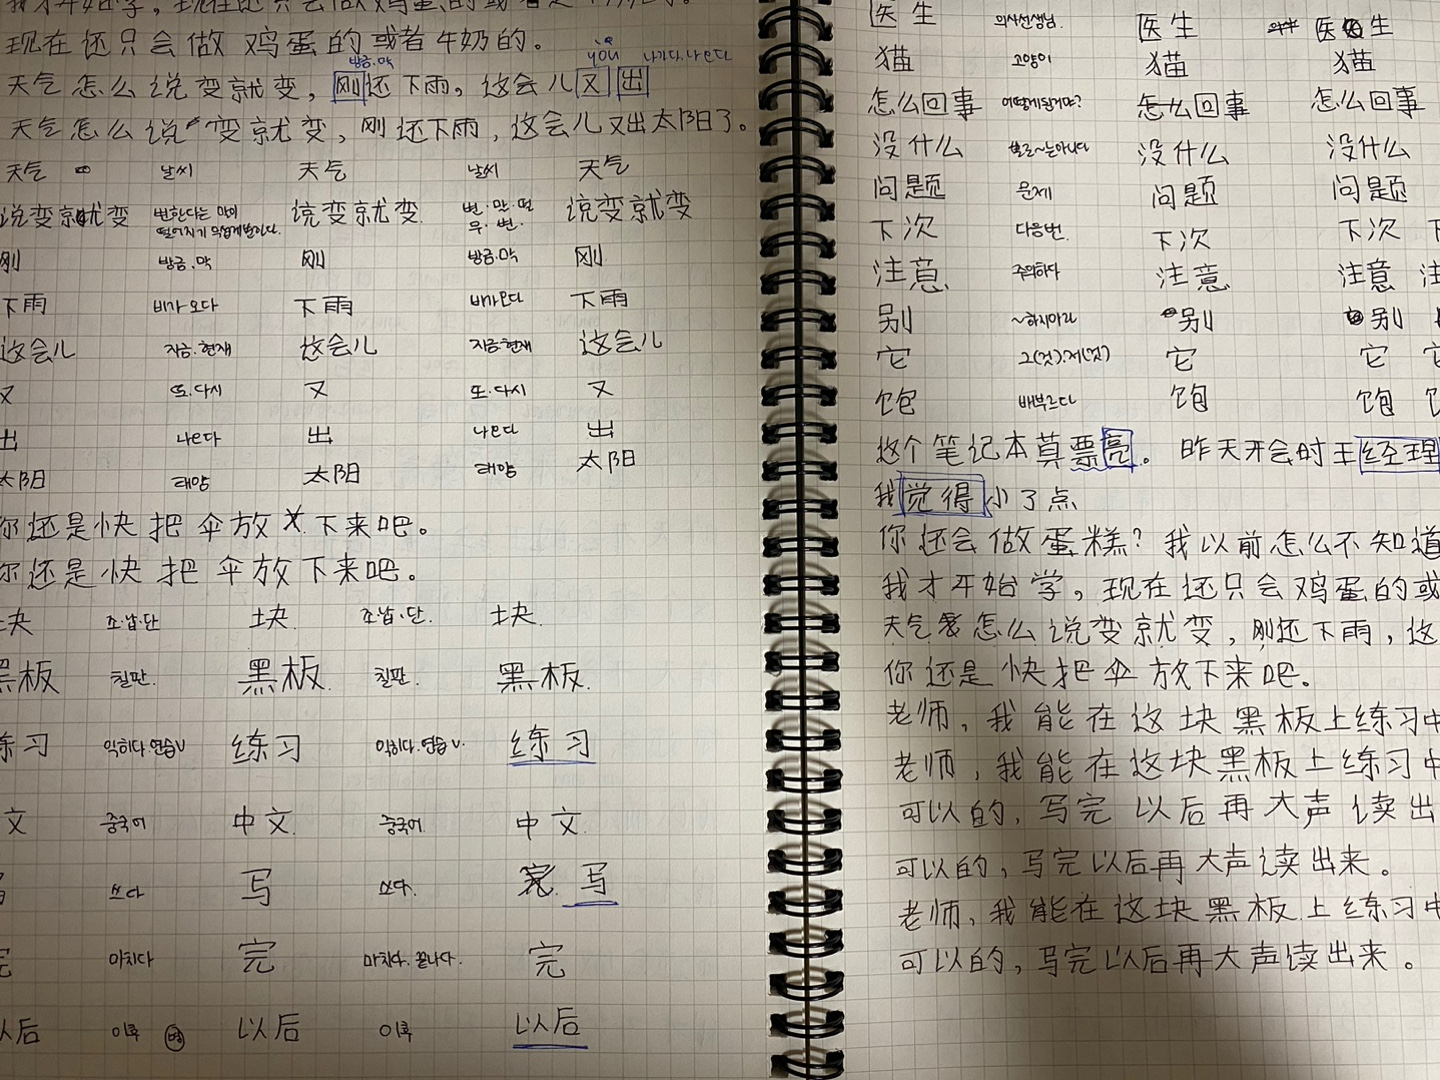 我才开始学，现在还只会做鸡蛋的或者是
现在还只会做鸡蛋的或者牛奶的。
방금.막 yòu 나가다.나오다
天气怎么说变就变，刚还下雨，这会儿又出
天气怎么说变就变，刚还下雨，这会儿又出太阳了。
天气 날씨 天气 날씨 天气
说变就变 변한다는 말이 떨어지기 무섭게 변하다. 说变就变 변.말.떨 무.변. 说变就变
刚 방금.막 刚 방금.막 刚
下雨 비가 오다 下雨 비가오다 下雨
这会儿 지금.현재 这会儿 지금.현재 这会儿
又 또.다시 又 또.다시 又
出 나오다 出 나오다 出
太阳 태양 太阳 태양 太阳
你还是快把伞放下来吧。
你还是快把伞放下来吧。
块 조.납.단 块 조.납.단. 块.
黑板 칠판. 黑板 칠판. 黑板.
练习 익히다.연습V 练习 익히다.연습V. 练习
文 중국어 中文. 중국어. 中文.
写 쓰다 写 쓰다. 写
完 마치다 完 마치다.끝나다. 完
以后 이후 以后 이후 以后
医生 의사선생님. 医生 医生
猫 고양이 猫 猫
怎么回事 어떻게된거야? 怎么回事 怎么回事
没什么 별로~는아니다 没什么 没什么
问题 문제 问题 问题
下次 다음번. 下次 下次 下
注意 주의하다 注意 注意 注
别 ~하지마라 别 别
它 그(것).저(것) 它 它 它
饱 배부르다 饱 饱
这个笔记本真票亮。昨天开会时王经理
我觉得小了点
你还会做蛋糕？我以前怎么不知道
我才开始学，现在还只会鸡蛋的或
天气怎么说变就变，刚还下雨，这
你还是快把伞放下来吧。
老师，我能在这块黑板上练习中
老师，我能在这块黑板上练习中
可以的，写完以后再大声读出
可以的，写完以后再大声读出来。
老师，我能在这块黑板上练习中
可以的，写完以后再大声读出来。